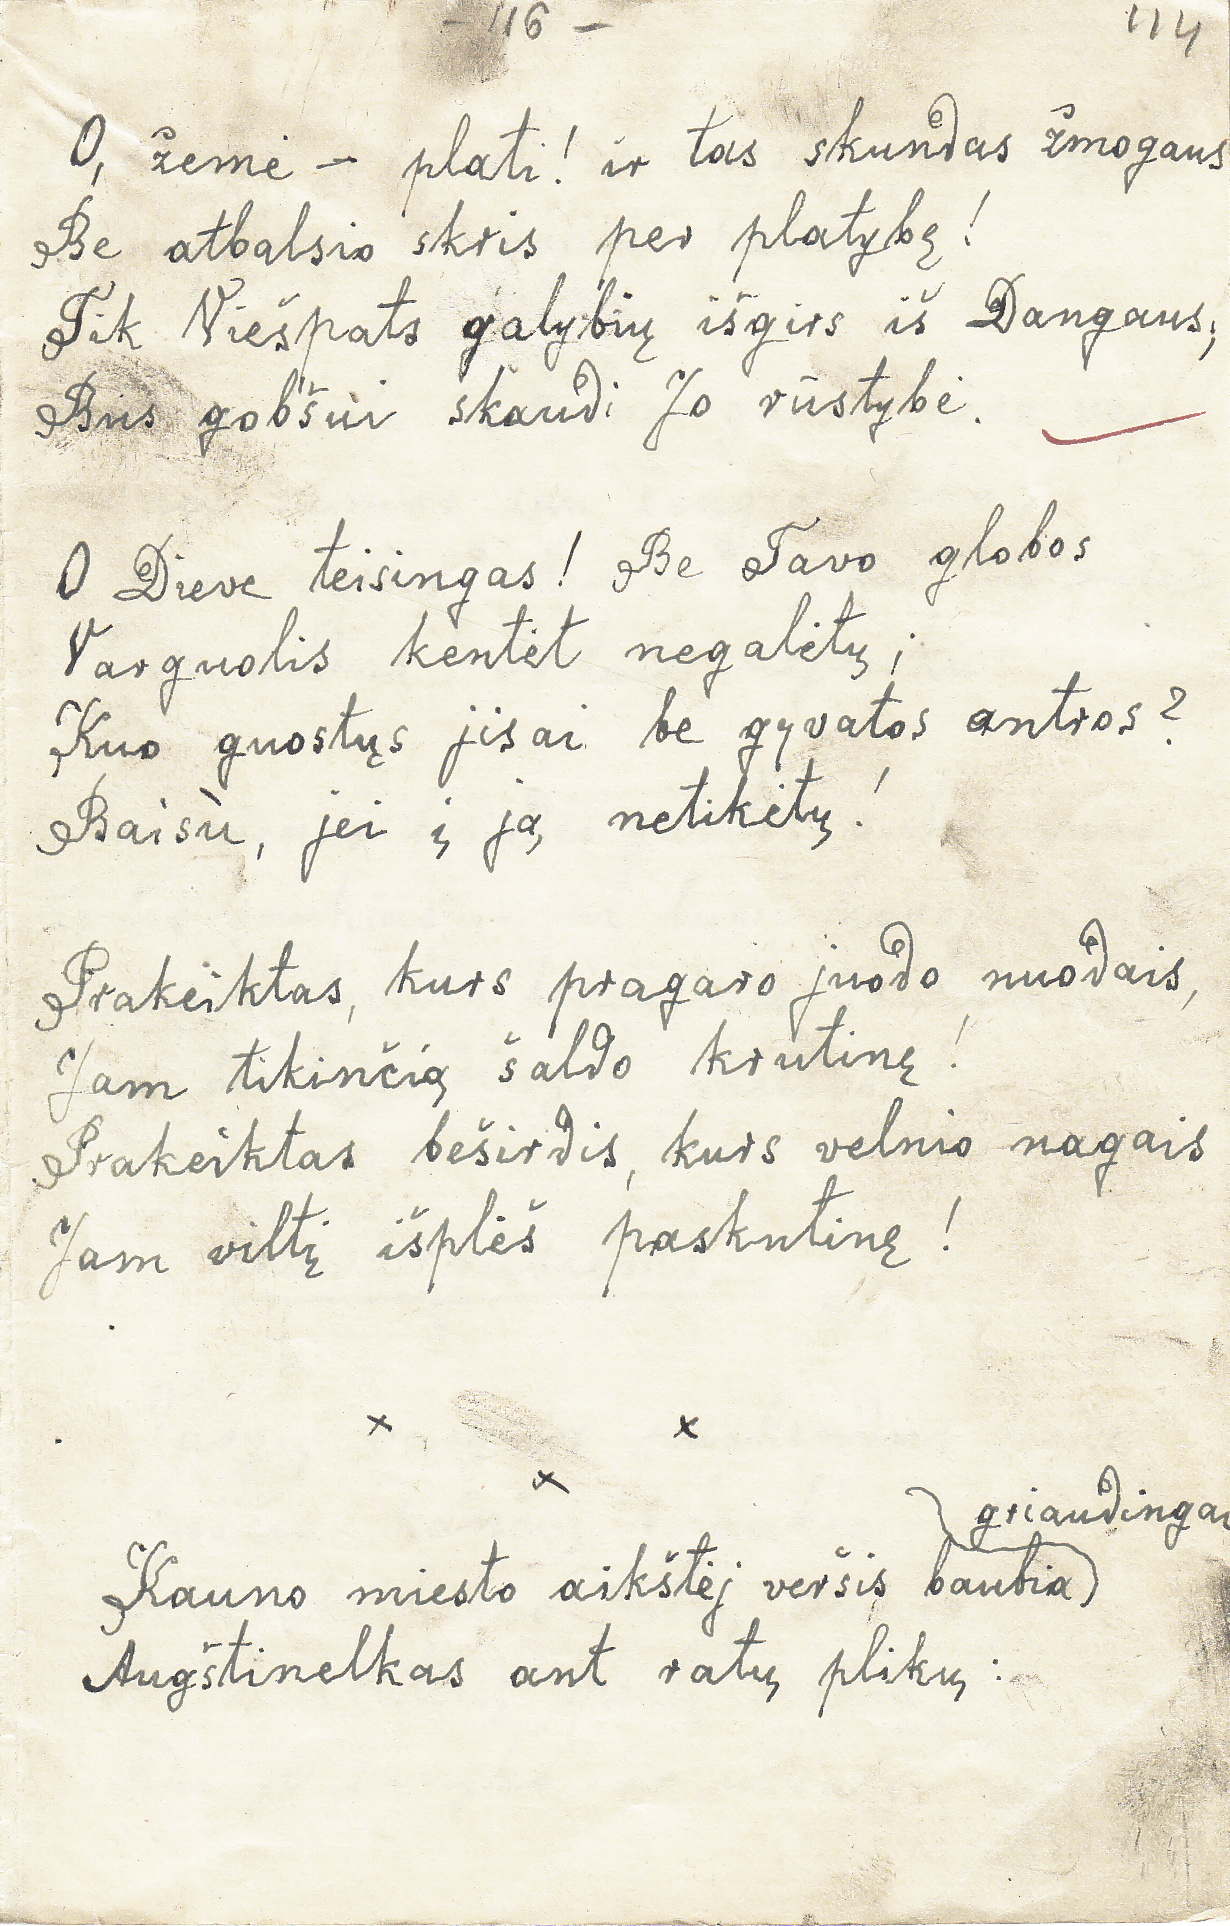 – 116 –
114
O, žemė – plati! ir tas skundas žmogaus
Be atbalsio skris per platybę!
Tik Viešpats galybių išgirs iš Dangaus;
Bus gobšui skaudi Jo rūstybė.
O Dieve teisingas! Be Tavo globos
Varguolis kentėt negalėtų;
Kuo guostųs jisai be gyvatos antros?
Baisu, jei į ją netikėtų!
Prakeiktas, kurs pragaro juodo nuodais,
Jam tikinčią šaldo krutinę!
Prakeiktas beširdis, kurs velnio nagais
Jam viltį išplėš paskutinę!
x x
x
griaudingai
Kauno miesto aikštėj veršis baubia)
Augštinelkas ant ratų plikų: